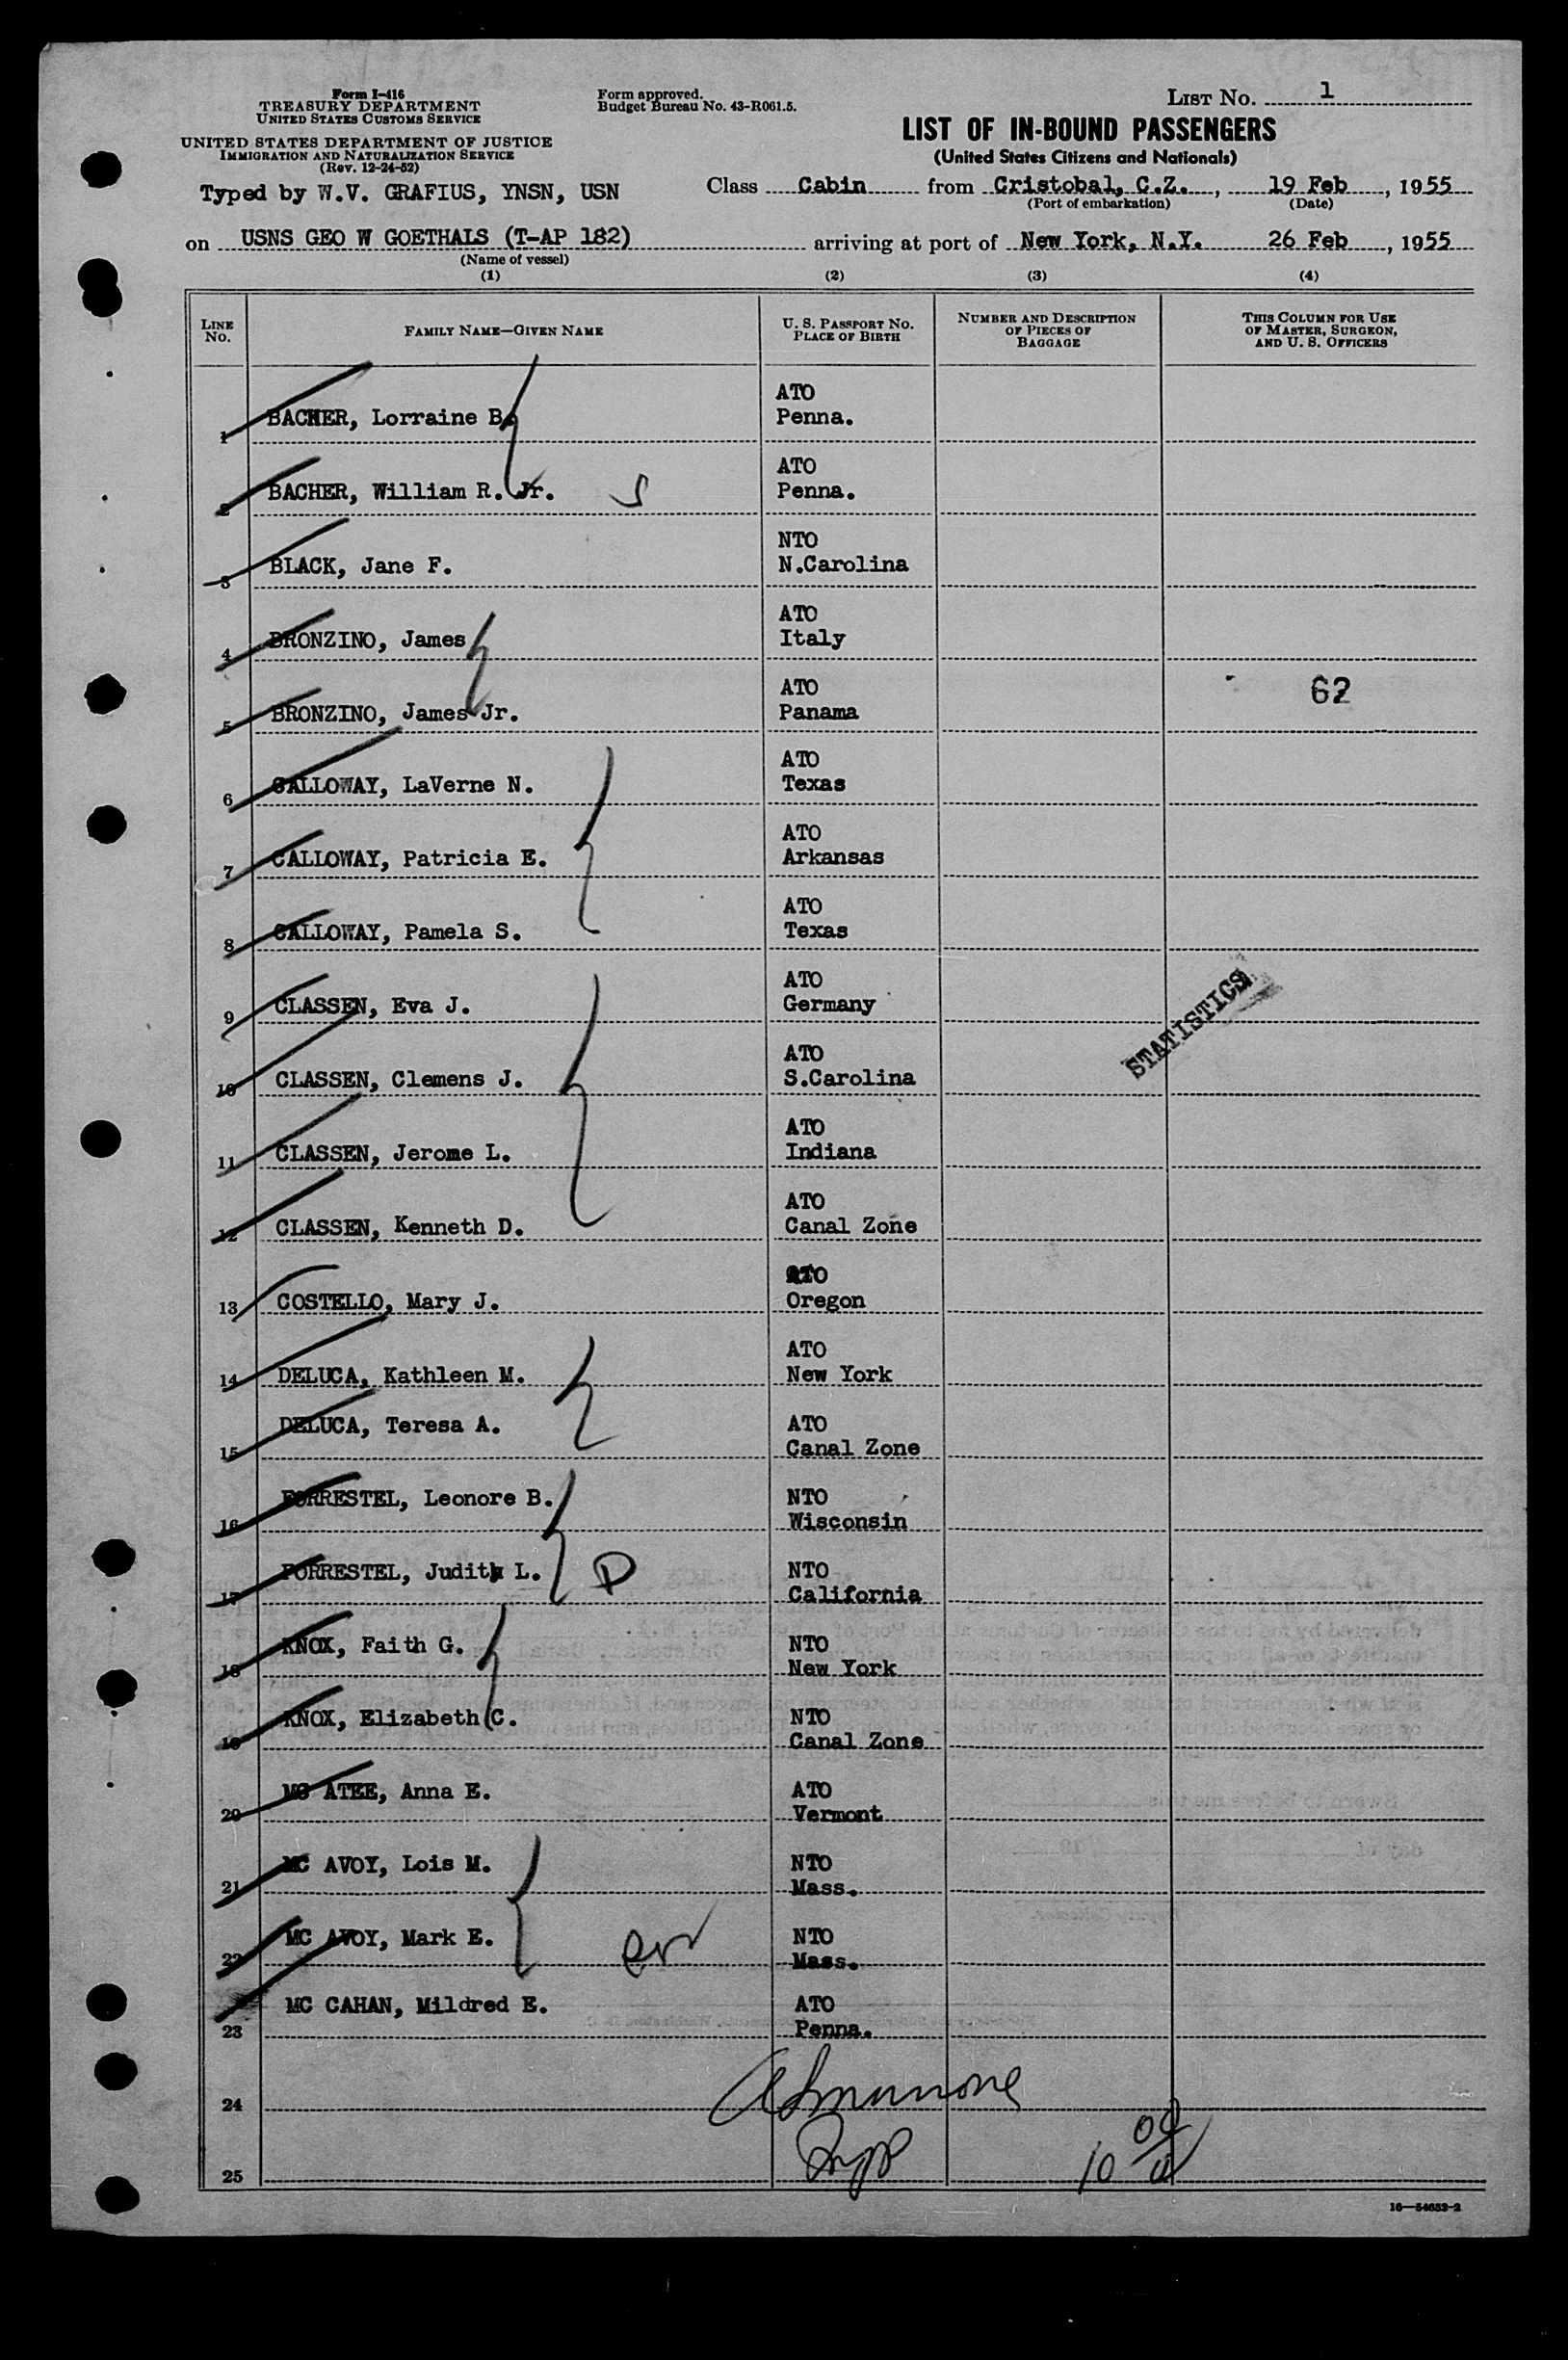 Form I-416
TREASURY DEPARTMENT
UNITED STATES CUSTOMS SERVICE
UNITED STATES DEPARTMENT OF JUSTICE
IMMIGRATION AND NATURALIZATION SERVICE
(Rev. 12-24-52)
Typed by W.V. GRAFIUS, YNSN, USN
Form approved.
Budget Bureau No. 43-R061.5.
LIST NO. 1
LIST OF IN-BOUND PASSENGERS
(United States Citizens and Nationals)
Class Cabin from Cristobal, C.Z., 19 Feb, 1955
(Port of embarkation) (Date)
on USNS GEO W GOETHALS (T-AP 182) arriving at port of New York, N.Y. 26 Feb, 1955
(Name of vessel)
(1) (2) (3) (4)
LINE NO.
FAMILY NAME—GIVEN NAME
U. S. PASSPORT NO.
PLACE OF BIRTH
NUMBER AND DESCRIPTION
OF PIECES OF
BAGGAGE
THIS COLUMN FOR USE
OF MASTER, SURGEON,
AND U. S. OFFICERS
ATO
1 BACHER, Lorraine B. Penna.
ATO
2 BACHER, William R. Jr. Penna.
NTO
3 BLACK, Jane F. N.Carolina
ATO
4 BRONZINO, James Italy
ATO 62
5 BRONZINO, James Jr. Panama
ATO
6 CALLOWAY, LaVerne N. Texas
ATO
7 CALLOWAY, Patricia E. Arkansas
ATO
8 CALLOWAY, Pamela S. Texas
ATO
9 CLASSEN, Eva J. Germany
STATISTICS
ATO
10 CLASSEN, Clemens J. S.Carolina
ATO
11 CLASSEN, Jerome L. Indiana
ATO
12 CLASSEN, Kenneth D. Canal Zone
13 COSTELLO, Mary J. Oregon
ATO
14 DELUCA, Kathleen M. New York
15 DELUCA, Teresa A. ATO
Canal Zone
16 FORRESTEL, Leonore B. NTO
Wisconsin
17 FORRESTEL, Judith L. D NTO
California
18 KNOX, Faith G. NTO
New York
19 KNOX, Elizabeth C. NTO
Canal Zone
20 MC ATEE, Anna E. ATO
Vermont
21 MC AVOY, Lois M. NTO
Mass.
22 MC AVOY, Mark E. NTO
Mass.
23 MC CAHAN, Mildred E. ATO
Penna.
24
25
16—54653-2